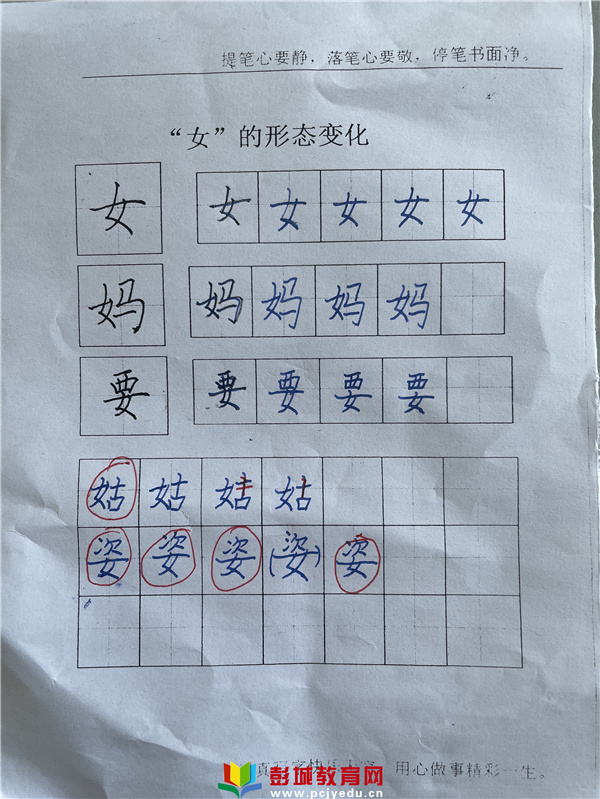 提笔心要静，落笔心要敬，停笔书面净。
“女”的形态变化
女 女 女 女 女 女
妈 妈 妈 妈 妈
要 要 要 要 要
姑 姑 姑 姑
姿 姿 姿 (姿) 姿
用心做事精彩一生。
彭城教育网
www.pcjyedu.cn